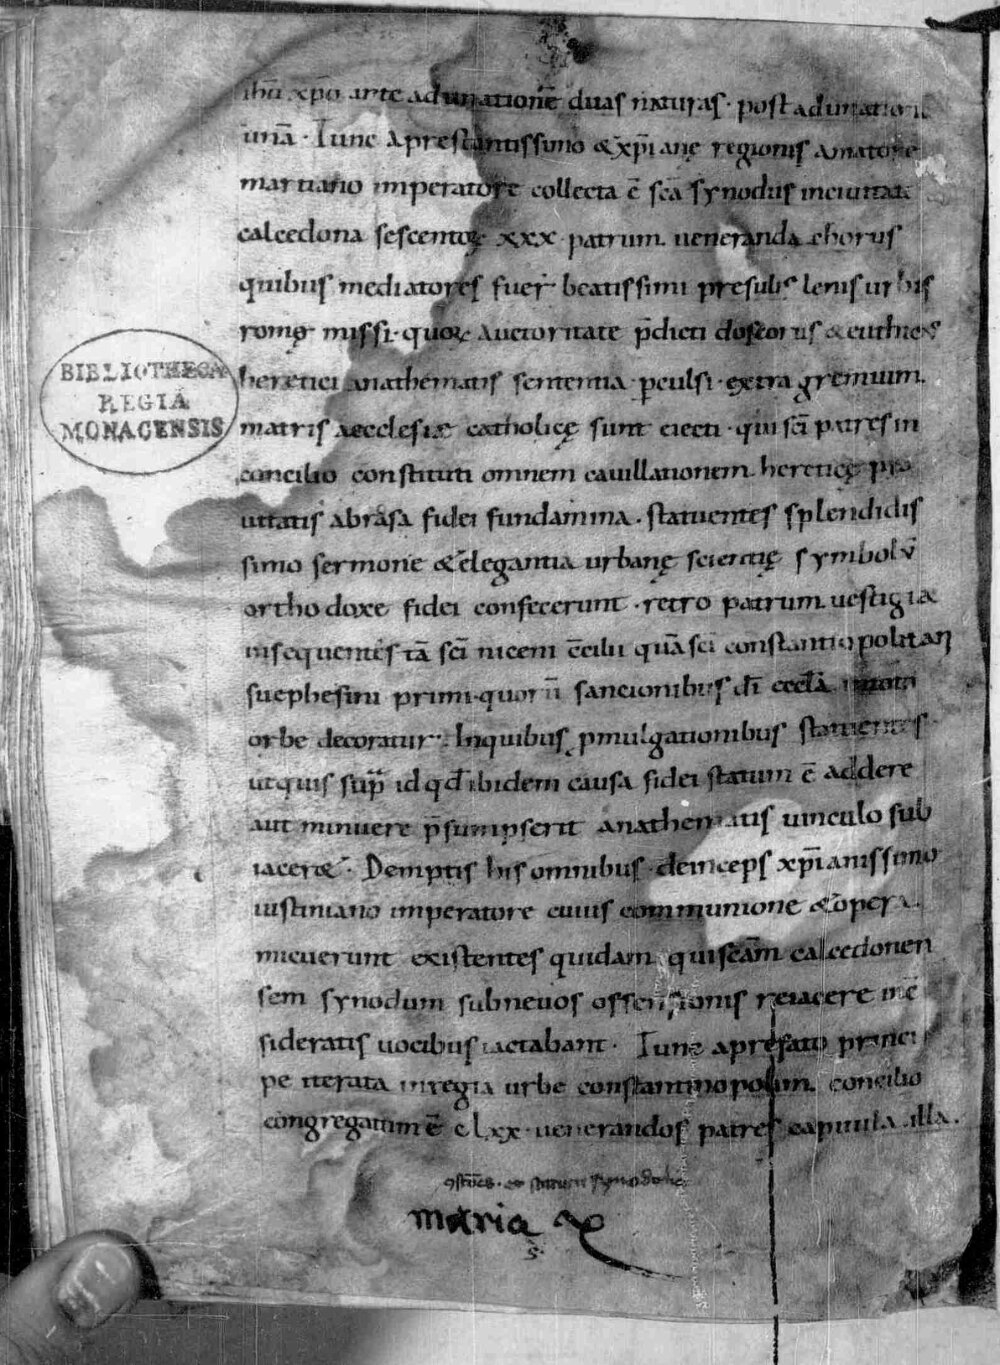 ihū xp̄o ante adunationē duas naturas · post adunation
unā · Tunc a prestantissimo & xp̄iane regionis amatore
martiano imperatore collecta ē sc̄a synodus inciuitate
calcedona sescentoꝝ xxx · patrum ueneranda chorus
quibus mediatores fuer̄ beatissimi presulis lenis urbis
romę missi · quoꝝ auctoritate p̄dicti doscorus & euthices
heretici anathematis sententia · ꝑculsi · extra gremium
matris aecclesiæ catholicę sunt eiecti · qui sc̄i patres in
concilio constituti omnem cauillationem hereticę pra
uitatis abrasa fidei fundamina · statuentes splendidis
simo sermone & elegantia urbanę scientię symbolū
orthodoxe fidei confecerunt · retro patrum uestigia
insequentes tā sc̄i niceni c̄cilii quā sc̄i constantiopolitani
suephesini primi · quorū sancionibus dī eccl̄a
orbe decoratur · Inquibus ꝓmulgationibus statuentes
utquis sup̄ id qd̄ ibidem causa fidei statum ē addere
aut minuere p̄sumpserit anathematis uinculo sub
iacer& · Demptis his omnibus · deinceps xp̄ianissimo
iustiniano imperatore cuius communione & opera
micuerunt existentes quidam qui sc̄am calcedonen
sem synodum subneuos offensionis reiacere incō
sideratis uocibus iactabant · Tunc aprefato princi
pe iterata inregia urbe constantinopolim concilio
congregatum ē clxx · uenerandos patres capitula illa .
statuta synodalia
maria
BIBLIOTHECA
REGIA
MONACENSIS